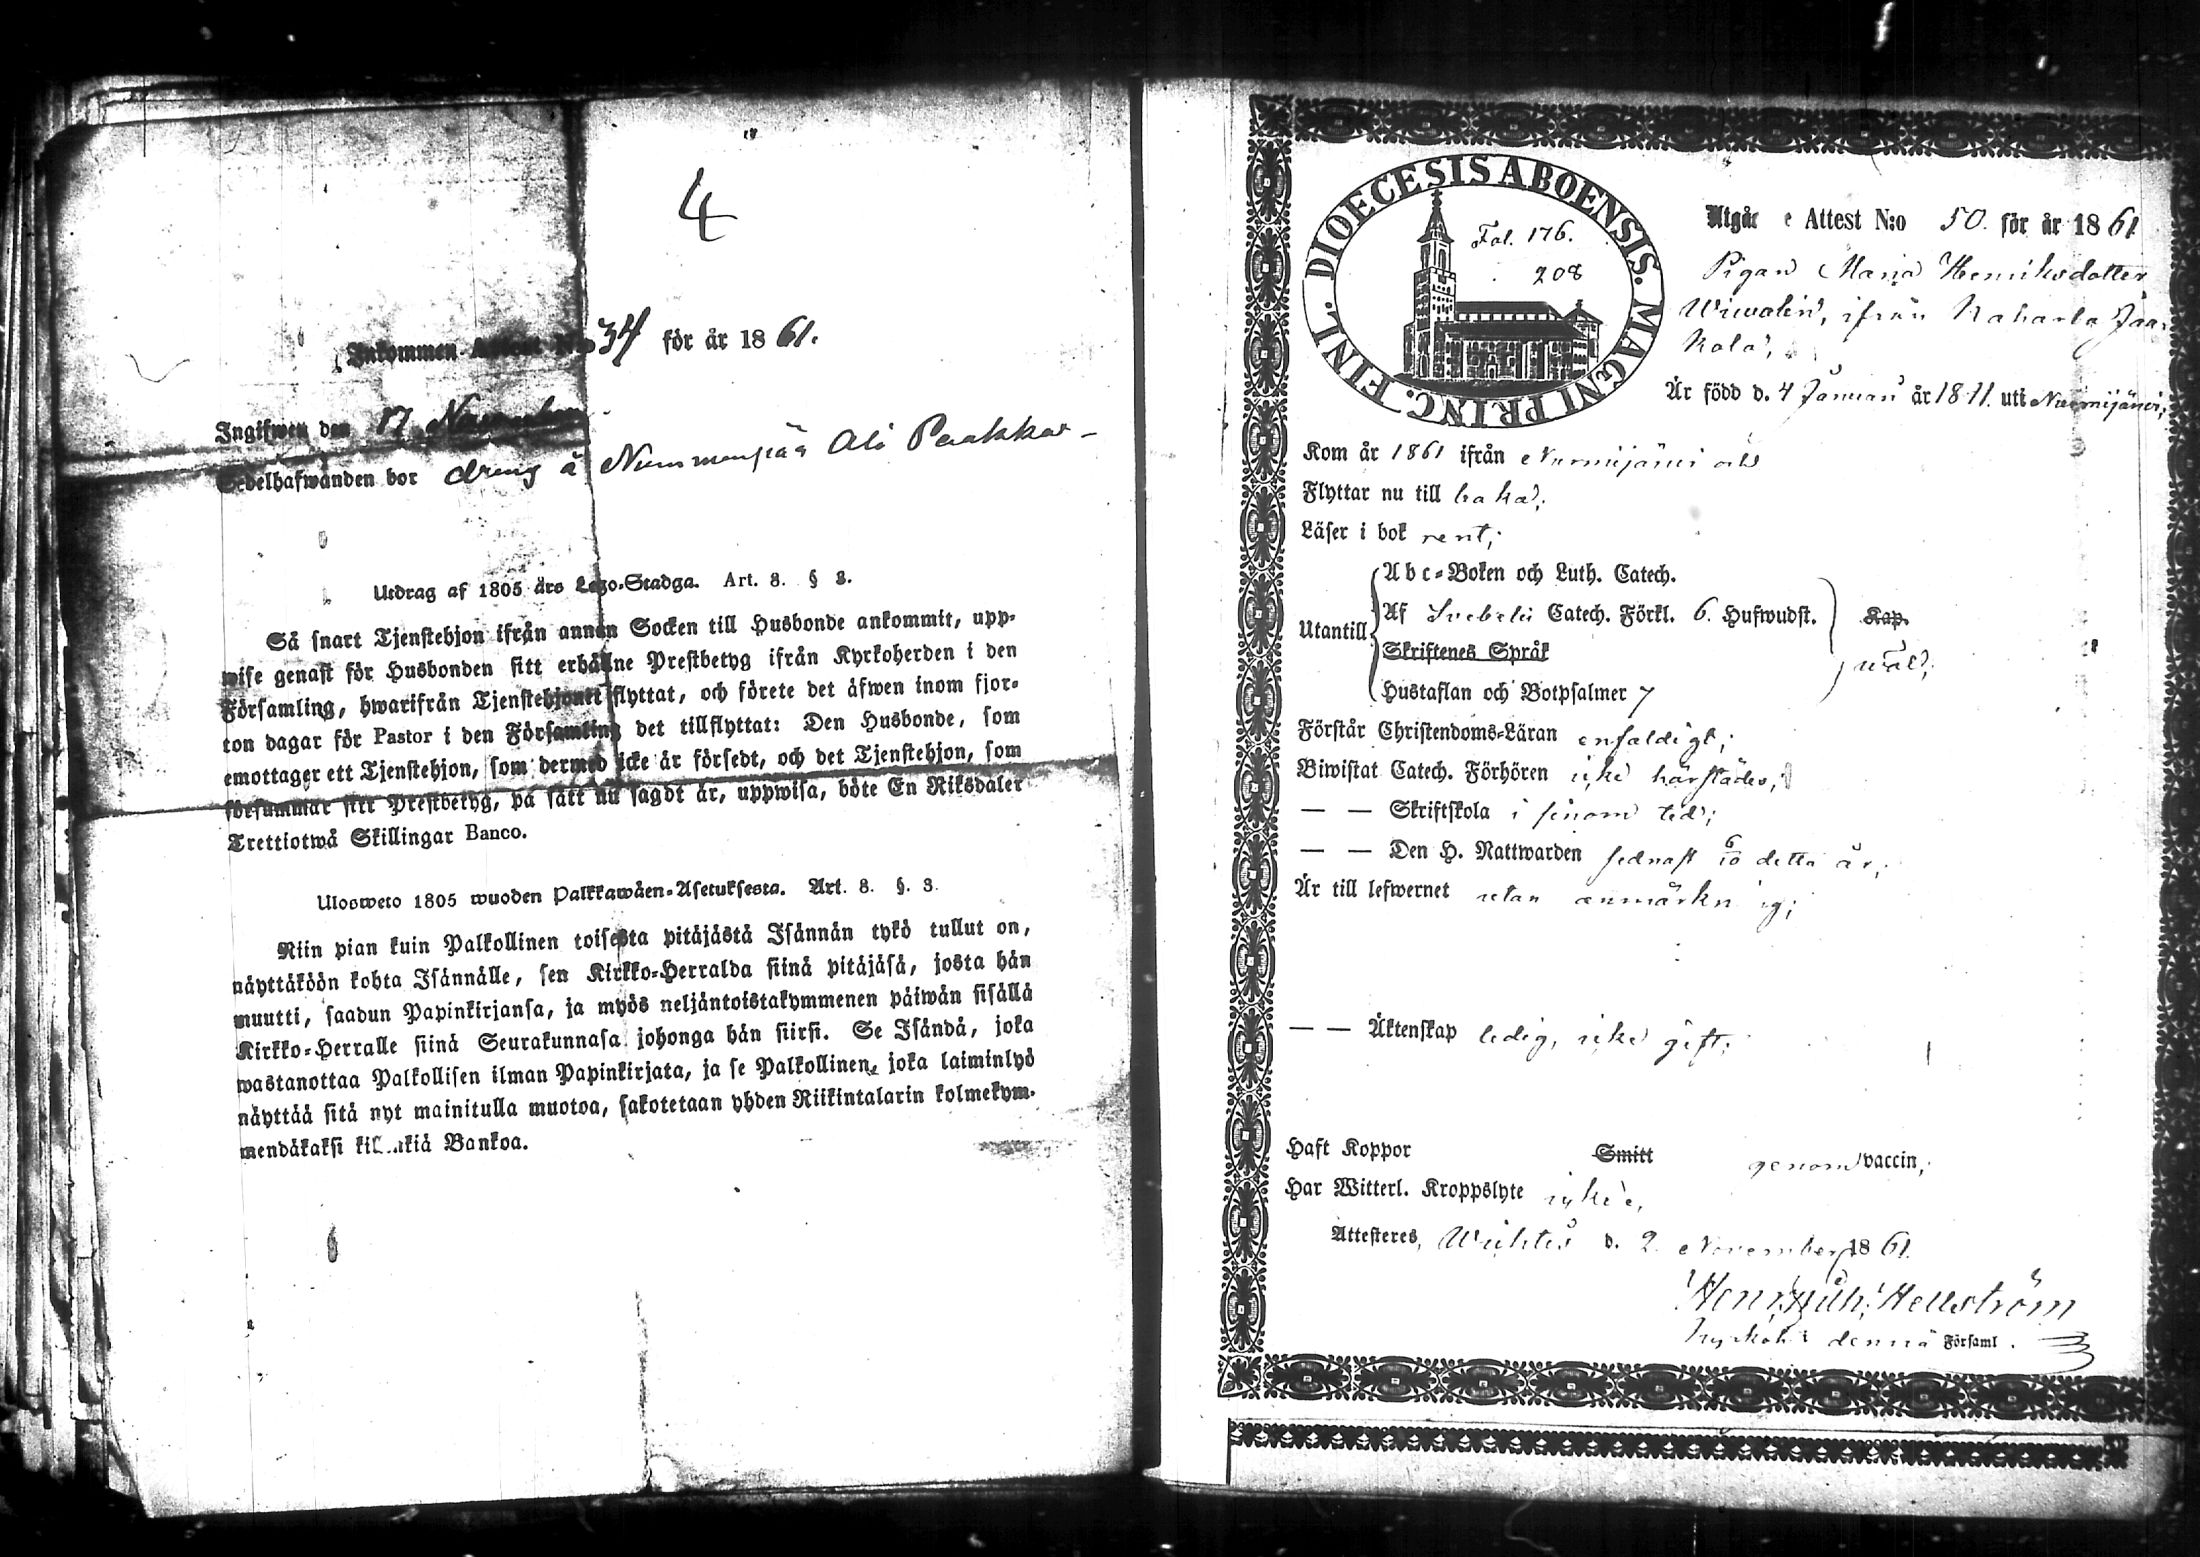 4
Inkommen Attest N:o 34 för år 1861.
Ingifwen den 17 November
Sedelhafwanden bor dreng å Nummenpää Ali Paakkar
Utdrag af 1805 års Lego-Stadga. Art. 8. § 3.
Så snart Tjenstehjon ifrån annan Socken till Husbonde ankommit, upp-
wise genast för Husbonden sitt erhållne Prestbetyg ifrån Kyrkoherden i den
Församling, hwarifrån Tjenstehjonet flyttat, och förete det äfwen inom fjor-
ton dagar för Pastor i den Församling det tillflyttat: Den Husbonde, som
emottager ett Tjenstehjon, som dermed icke är försedt, och det Tjenstehjon, som
försummar sitt Prestbetyg, på sätt nu sagdt är, uppwisa, böte En Riksdaler
Trettiotwå Skillingar Banco.
Uloosweto 1805 wuoden Palkkawäen-Asetuksesta. Art. 8. §. 3.
Niin pian kuin Palkollinen toisesta pitäjästä Isännän tykö tullut on,
näyttäköön kohta Isännälle, sen Kirkko-Herralda siinä pitäjäsä, josta hän
muutti, saadun Papinkirjansa, ja myös neljäntoistakymmenen päiwän sisällä
Kirkko-Herralle siinä Seurakunnasa johonga hän siirsi. Se Isändä, joka
wastanottaa Palkollisen ilman Papinkirjata, ja se Palkollinen, joka laiminlyö
näyttää sitä nyt mainitulla muotoa, sakotetaan yhden Riikintalarin kolmekym-
mendäkaksi killinkiä Bankoa.
DIOECESIS ABOENSIS. MAGNI PRINC. FINL.
Fol. 176.
208
Utgående Attest N:o 50. för år 1861
Pigan Maria Henriksdotter
Wiwolin, ifrån Haharla Jaa-
kola,
Är född d. 4 Januari år 1811. uti Nurmijärvi,
Kom år 1861 ifrån Nurmijärvi och
Flyttar nu till baka,
Läser i bok rent;
Utantill
Abc-Boken och Luth. Catech.
Af Svebelii Catech. Förkl. 6. Hufwudst.
Kap.
Skriftenes Språk
wäl,
Hustaflan och Botpsalmer 7
Förstår Christendoms-Läran enfaldigt;
Biwistat Catech. Förhören icke härstädes;
— — Skriftskola i sinom tid;
— — Den H. Nattwarden sednast 6/10 detta år;
Är till lefwernet utan anmärkning;
— — Äktenskap ledig, icke gift;
Haft Koppor Smitt genom vaccin,
Har Witterl. Kroppslyte icke,
Attesteres, Wichtis d. 2. November 1861.
Henr. Hellström
Kyrkoh. i denna Församl.